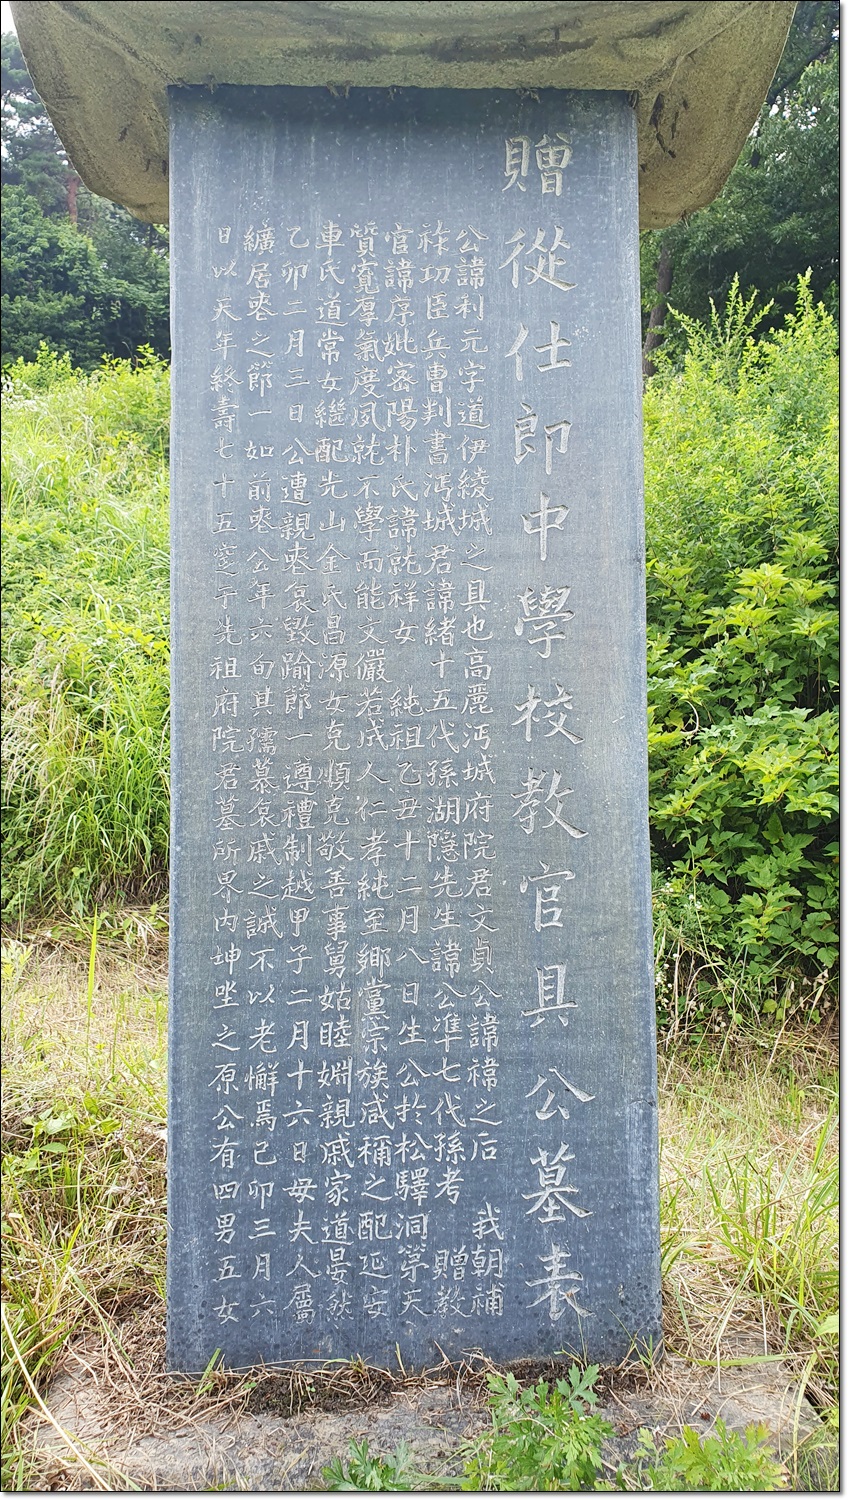 贈從仕郎中學校教官具公墓表
公諱利元字道伊綾城之具也高麗沔城府院君文貞公諱禕之后 我朝補
祚功臣兵曹判書沔城君諱緒十五代孫湖隱先生諱公準七代孫考 贈教
官諱序妣密陽朴氏諱就祥女 純祖乙丑十二月八日生公於松驛洞第天
質寬厚氣度夙就不學而能文儼若成人仁孝純至鄉黨宗族咸稱之配延安
車氏道常女繼配光山金氏昌源女克順克敬善事舅姑睦婣親戚家道晏然
乙卯二月三日公遭親喪哀毀踰節一遵禮制越甲子二月十六日母夫人屬
纊居喪之節一如前喪公年六旬其孺慕哀戚之誠不以老懈焉己卯三月六
日以天年終壽七十五窆于先祖府院君墓所界內坤坐之原公有四男五女